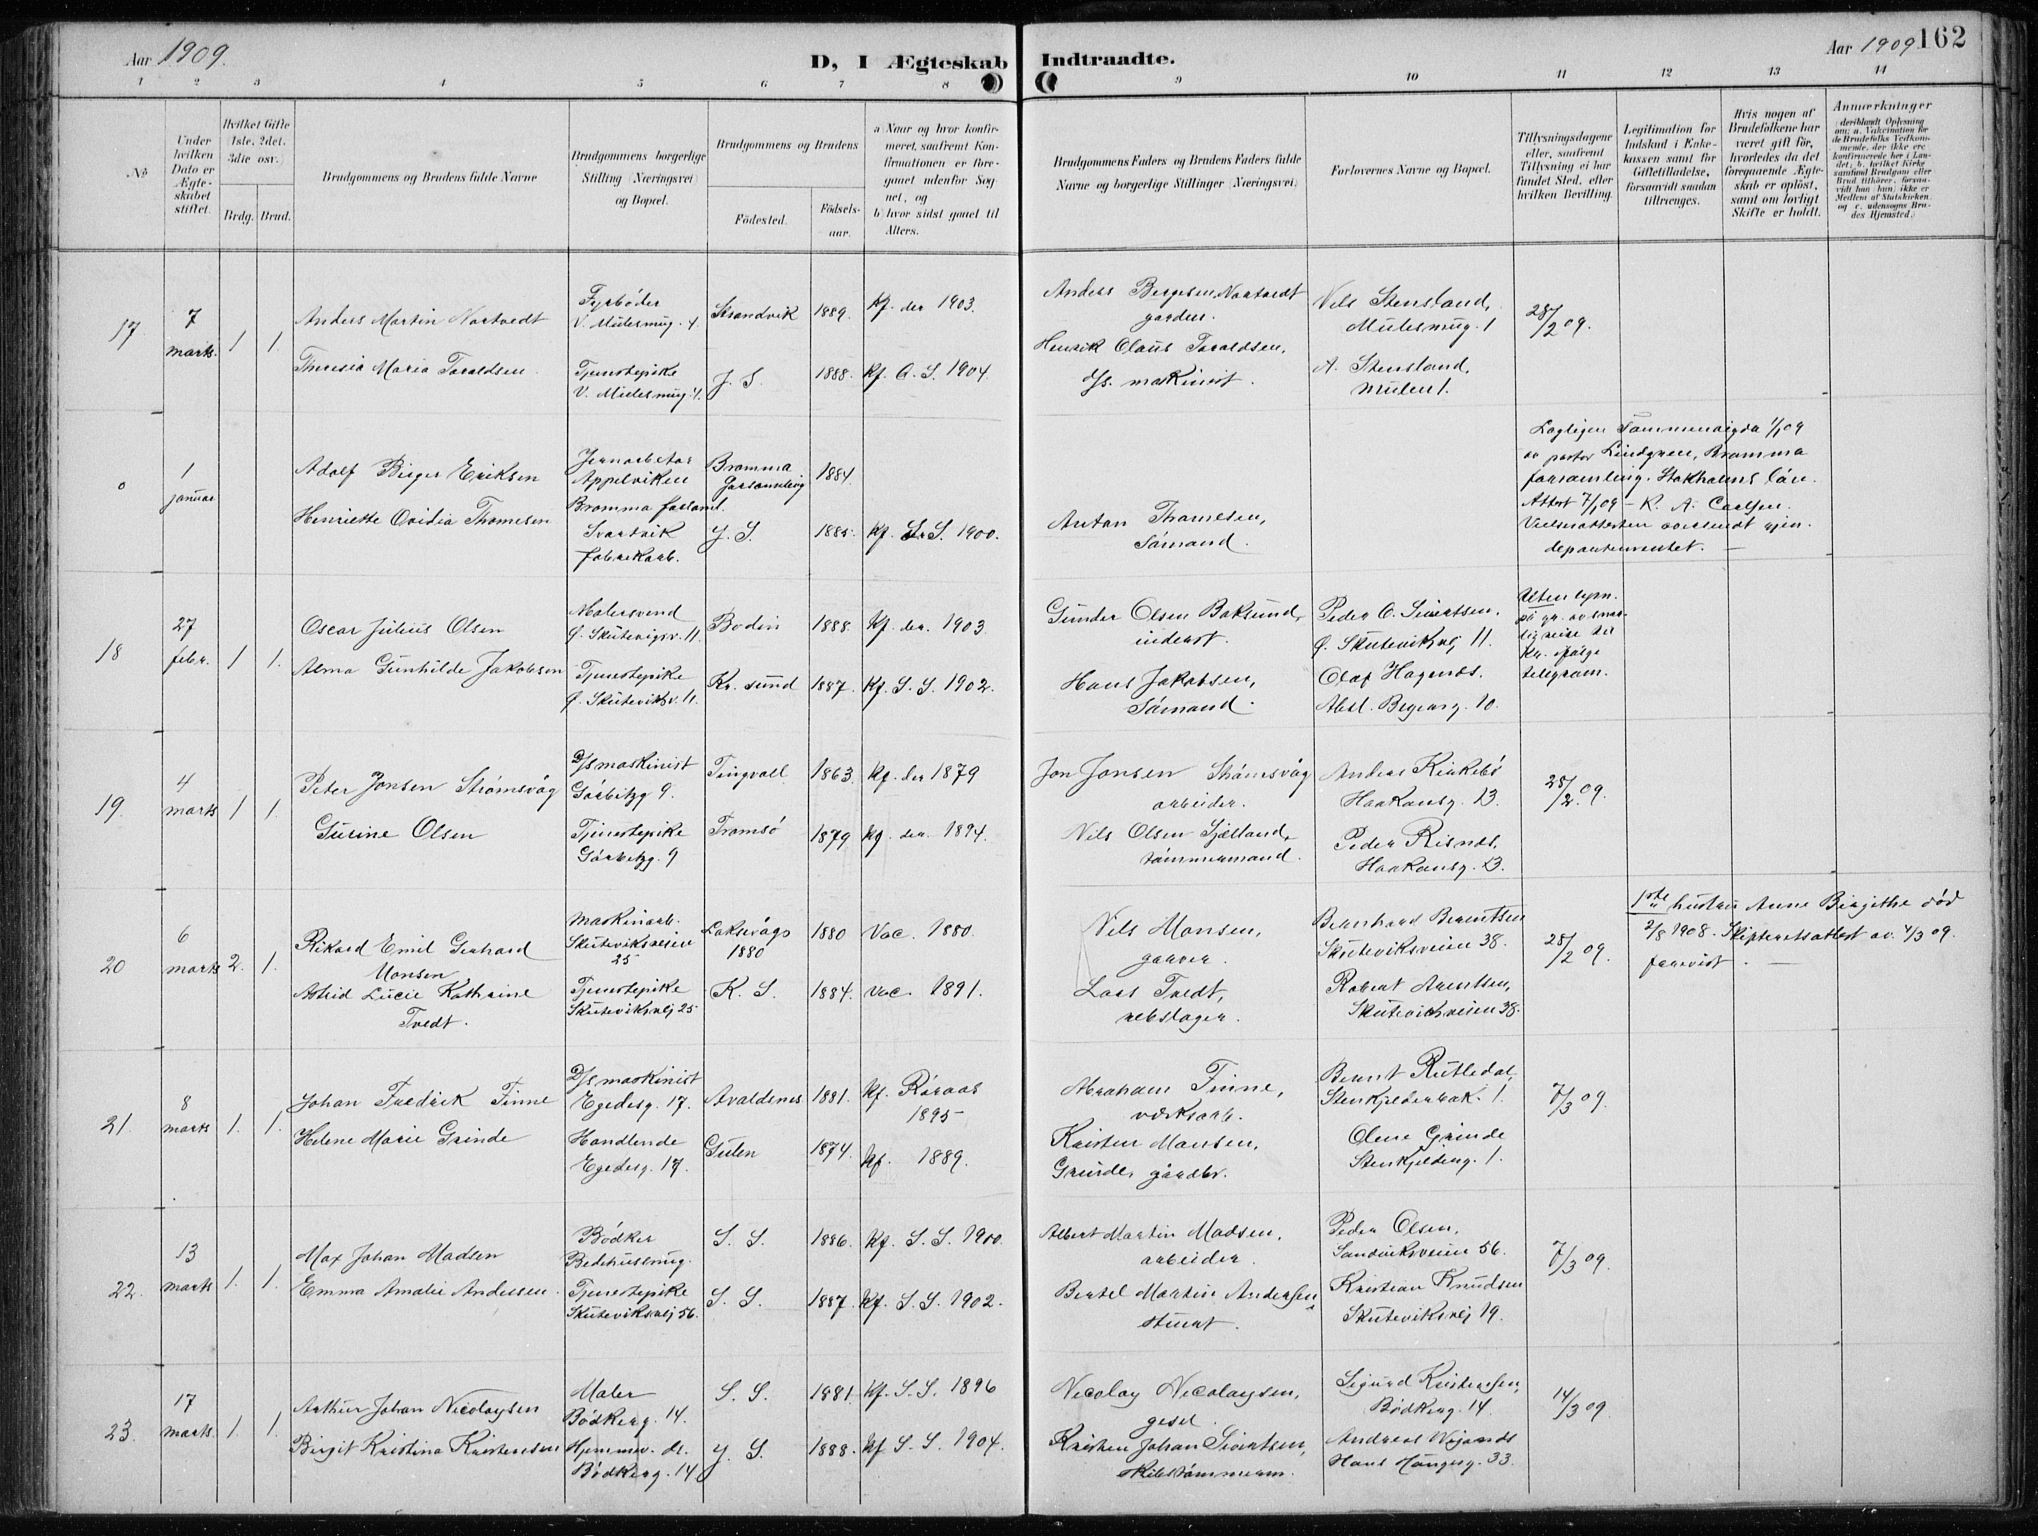 Aar 1909.
D, I Ægteskab Indtraadte.
Aar 1909 162
1 2 3 4 5 6 7 8 9 10 11 12 13 14
No
Under hvilken Dato er Ægteskabet stiftet.
Hvilket Gifte 1ste, 2det, 3die osv.
Brdg. Brud.
Brudgommens og Brudens fulde Navne
Brudgommens borgerlige Stilling (Næringsvei) og Bopæl.
Brudgommens og Brudens
Fødested.
Fødselsaar.
a) Naar og hvor konfirmeret, saafremt Konfirmationen er foregaaet udenfor Sognet, og
b) hvor sidst gaaet til Alters.
Brudgommens Faders og Brudens Faders fulde Navne og borgerlige Stillinger (Næringsvei)
Forlovernes Navne og Bopæl.
Tillysningsdagene eller, saafremt Tillysning ei har fundet Sted, efter hvilken Bevilling.
Legitimation for Indskud i Enkekassen samt for Giftetilladelse, forsaavidt saadan tiltrænges.
Hvis nogen af Brudefolkene har været gift før, hvorledes da det foregaaende Ægteskab er opløst, samt om lovligt Skifte er holdt.
Anmerkninger
17
7 marts
1 1.
Anders Martin Nortvedt
Fyrbøder
V. Mulesmug. 4
Strandvik 1889. Kf. der 1903.
Anders Nortvedt
Nils Stensland,
Mulesmug. 1
28/2 09.
Theresia Maria Taraldsen
Tjenestepike
V. Mulesmug 4.
J. S. 1888. Kf. 1904.
Henrik Olaus Taraldsen,
d/s. maskinist.
A. Stensland,
Mulen 1.
1 januar
Adolf Birger Eriksen
Jernarbetar
Appelviken
Bromma
1884.
Lagligen Sammenvigda 1/1 09
av pastor Lindgren, Bromma
forsamling. Stokholms län.
Attest 7/1 09 – K. A. Carlsen
departementet. –
Henriette Ovidia Thomesen
Svartvik
fabrikarb.
J. S. 1885. Kf. 1900.
Anton Thomesen,
Sømand.
18
27 febr.
1 1.
Oscar Julius Olsen
Malersvend
Ø. Skutevigsv. 11.
Bodin 1888. Kf. der. 1903
Gunder Olsen Boksund,
inderst.
Peder C. Sivertsen.
Ø. Skuteviksvej 11.
Uten lysn.
telegram.
Alma Gunhilde Jakobsen
Tjenestepike
Ø. Skuteviksv. 11.
Kr. sund 1887. Kf. S. S. 1902.
Hans Jakobsen,
Sømand.
Olaf Hagenæs.
10.
19.
4 marts
1 1.
Peter Jonsen Strømsvåg
D/s maskinist
Gørbitzg 9.
Tingvoll 1863. Kf. der 1879
Jon Jonsen Strømsvåg
arbeider.
Anders Kirkebø
Haakonsg. 13.
28/2. 09.
Gurine Olsen
Tjenestepike
Gørbitzg. 9
Tromsø 1879 Kf. der. 1894.
Nils Olsen Sjølland,
tømmermand.
Peder Risnes,
Haakonsg. 13.
20
6 marts
2. 1.
Rikard Emil Gerhard
Monsen
Maskinarb.
Skuteviksveien
25
Laksevåg
1880
1880 Vac. 1880.
Nils Monsen,
garver.
Bernhard Berentsen
Skuteviksveien 38.
28/2 09.
1ste hustru Anne Birgithe død
2/8 1908. Skifteretsattest av. 4/3 09.
forevist. –
Astrid Lucie Kathrine
Tvedt.
Tjenestepike
Skuteviksvej 25
K. S. 1884. Vac. 1891.
Lars Tvedt,
rebslager.
Robert Arentsen,
Skuteviksveien 38.
21.
8 marts
1. 1.
Johan Fredrik Finne
D/s maskinist
Egedesg. 17.
Avaldsnes 1881. Kf. Røraas
1895
Abraham Finne,
værksarb.
Bernt Rutledal,
1.
7/3 09.
Helene Marie Grinde
Handlende
Egedesg. 17.
Gulen 1874. Kf. 1889.
Kristen Monsen,
Grinde, gårdbr.
Olene Grinde
1.
22.
13 marts
1. 1.
Max Johan Madsen
Bødker
Bedehusmug.
S. S. 1886. Kf. S. S. 1900.
Albert Martin Madsen,
arbeider.
Peder Olsen,
Sandviksveien 56.
7/3 09.
Emma Amalie Andersen.
Tjenestepike
Skuteviksvej 56.
S. S. 1887. Kf. S. S. 1902.
Bertel Martin Andersen,
stuert.
Kristian Knudsen
Skuteviksvej 19.
23.
17 marts.
1. 1.
Arthur Johan Nicolaysen
Maler
Bødkerg. 14.
S. S. 1881. Kf. S. S. 1896
Nicolay Nicolaysen,
gesel.
Sigurd Kristensen,
Bødkerg. 14.
14/3 09
Birgit Kristina Kristensen
Hjemmev. dt.
Bødkerg. 14
J. S. 1888. Kf S. S. 1904.
Kristen Johan Sivertsen,
skibstømmerm.
33.